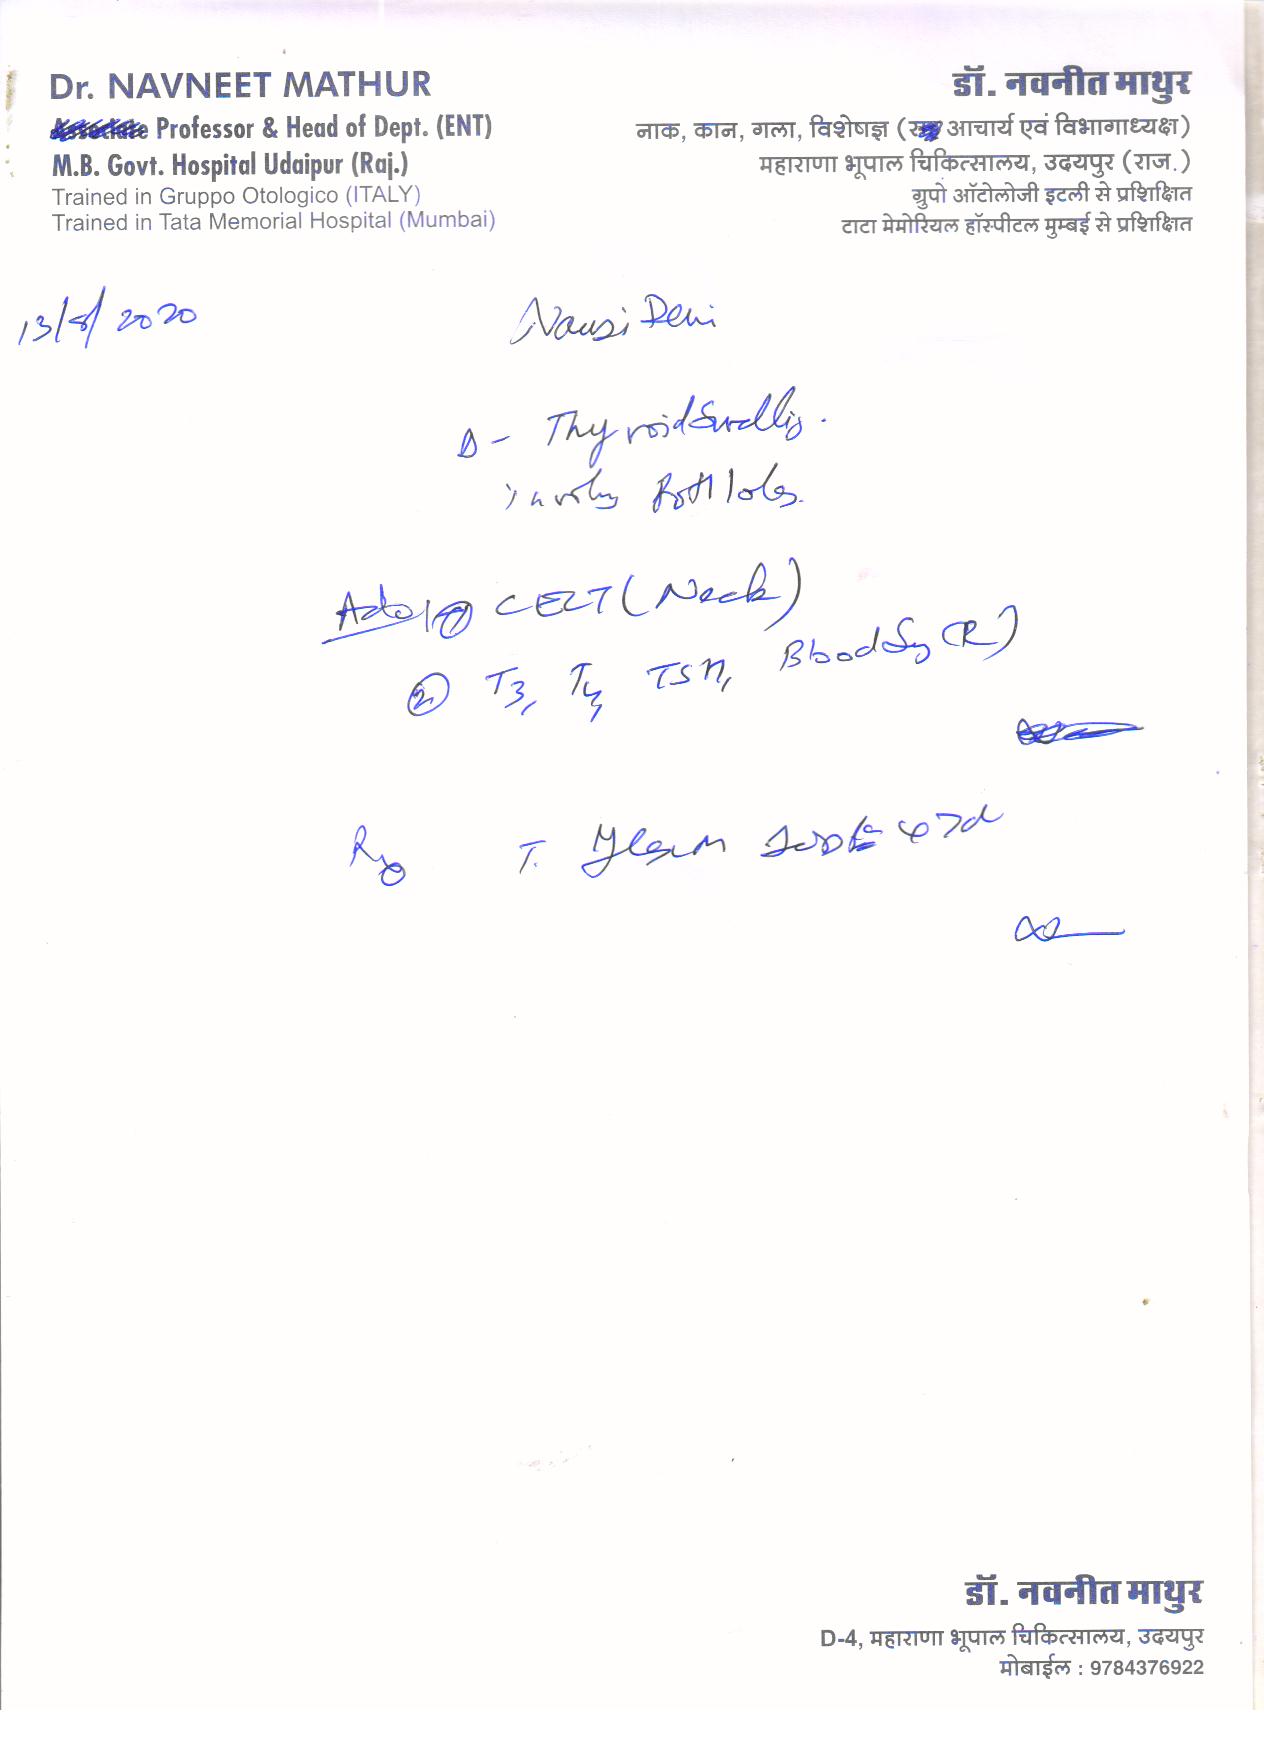 Dr. NAVNEET MATHUR
Professor & Head of Dept. (ENT)
M.B. Govt. Hospital Udaipur (Raj.)
Trained in Gruppo Otologico (ITALY)
Trained in Tata Memorial Hospital (Mumbai)
डॉ. नवनीत माथुर
नाक, कान, गला, विशेषज्ञ ( आचार्य एवं विभागाध्यक्ष)
महाराणा भूपाल चिकित्सालय, उदयपुर (राज.)
ग्रुपो ऑटोलोजी इटली से प्रशिक्षित
टाटा मेमोरियल हॉस्पीटल मुम्बई से प्रशिक्षित
13/8/2020
Devi
Δ - Thyroid Swelling.
involving Both lobes.
Adv ① CECT (Neck)
② T3, T4, TSH, Blood Sug (R)
Rx T.
डॉ. नवनीत माथुर
D-4, महाराणा भूपाल चिकित्सालय, उदयपुर
मोबाईल : 9784376922